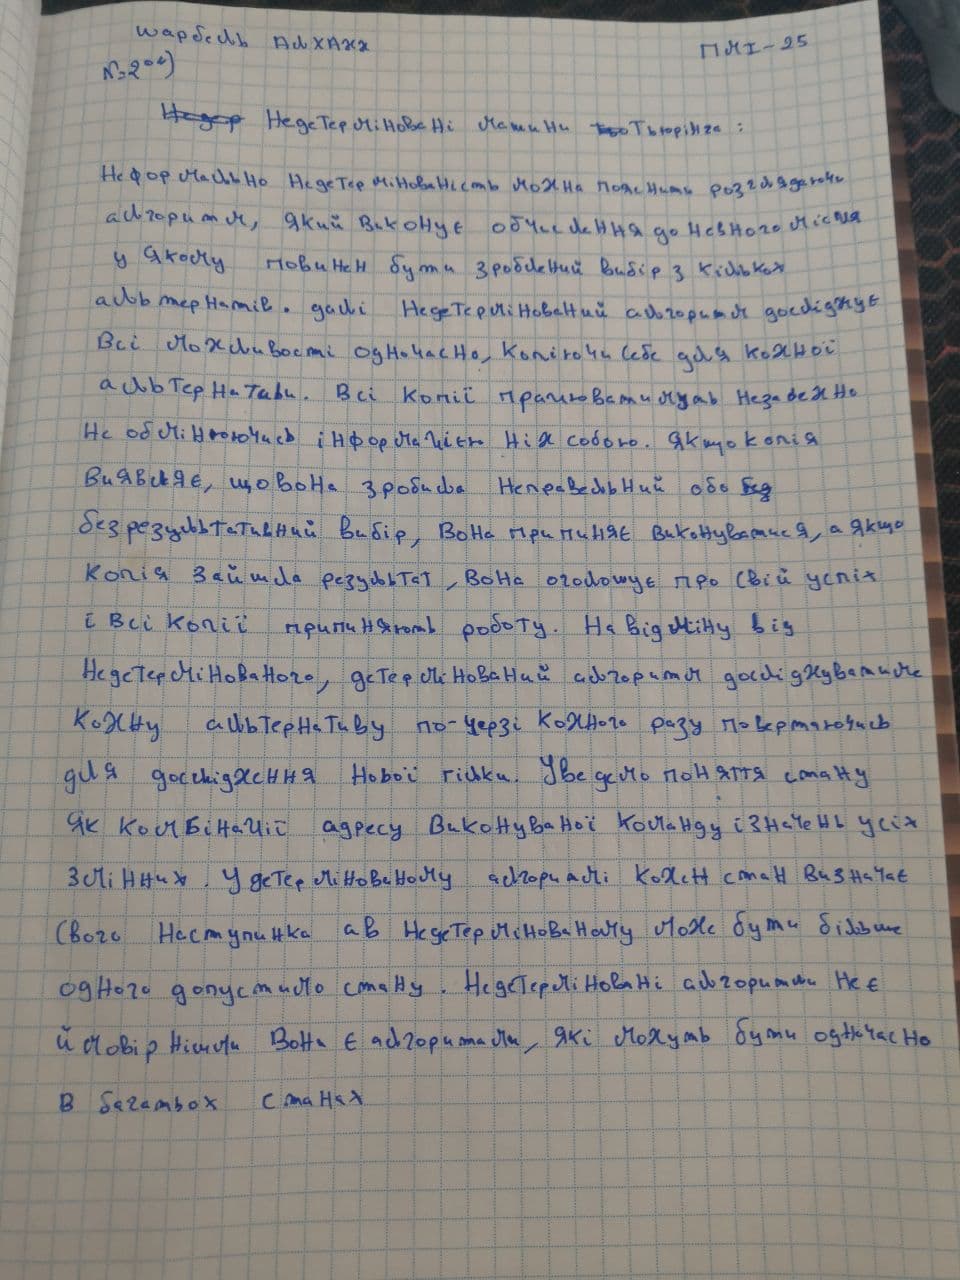 Шарбель Алхажж ПМІ-25
№2 04)
Недетерміновані машини Тьюрінга :
Неформально недетермінованість можна пояснити розглядаючи
алгоритм, який виконує обчислення до певного місця
у якому повинен бути зроблений вибір з кількох
альтернатив. далі недетермінований алгоритм досліджує
всі можливості одночасно, копіючи себе для кожної
альтернативи. Всі копії працюватимуть незалежно
не обмінюючись інформацією між собою. якщо копія
виявляє, що вона зробила неправельний або
безрезультативний вибір, вона припиняє виконуватися, а якщо
копія займла результат, вона оголошує про свій успіх
і всі копії припиняють роботу. На відміну від
недетермінованого, детермінований алгоритм досліджуватиме
кожну альтернативу по-черзі кожного разу повертаючись
для дослідження нової гілки. Уведемо поняття стану
як комбінації адресу виконуваної команду і значень усіх
змінних. У детермінованому алгоритмі кожен стан визначає
свого наступника а в недетермінованому може бути більше
одного допустимо стану. Недетерміновані алгоритми не є
ймовірнісими вони є алгоритмами, які можуть бути одночасно
в багатьох станах